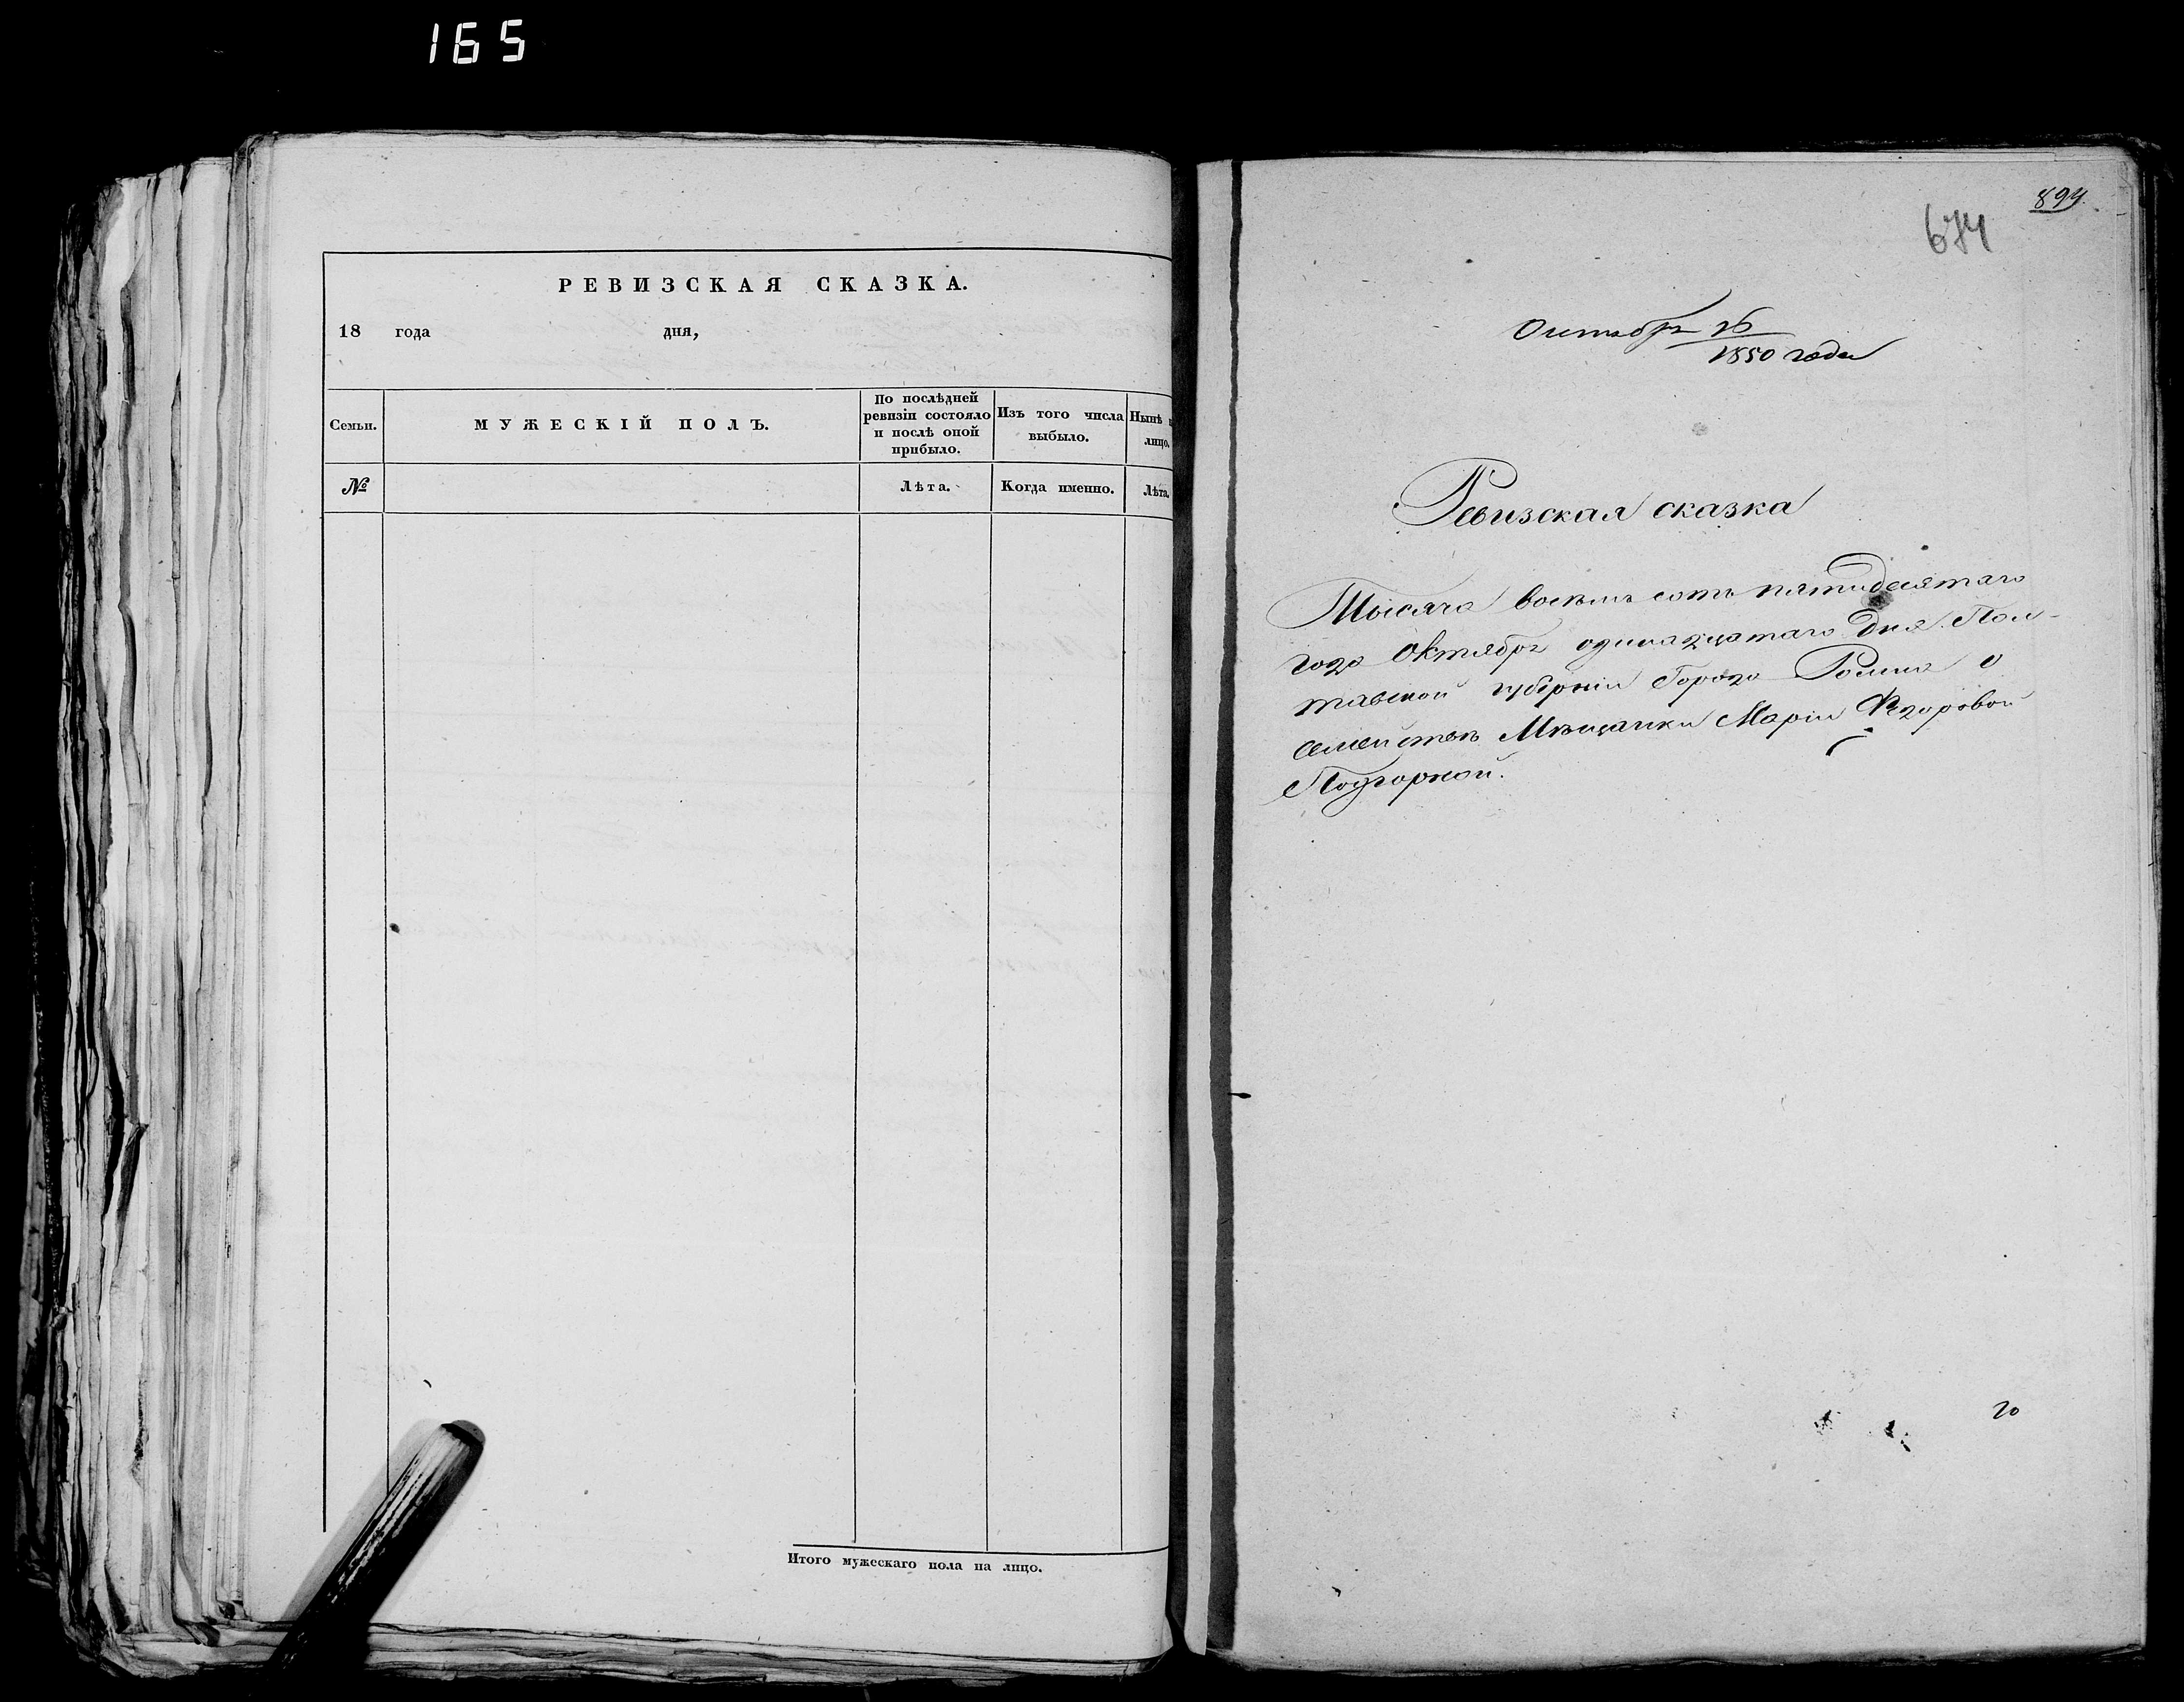 165
РЕВИЗСКАЯ СКАЗКА.
18 года дня,
Семьи.
МУЖЕСКІЙ ПОЛЪ.
По послѣдней
ревизіи состояло
и послѣ оной
прибыло.
Изъ того числа
выбыло.
Нынѣ
лицо.
№
Лѣта.
Когда именно.
Лѣта.
Итого мужескаго пола на лицо.
894
674
Октябрь 26
1850 года
Ревизская сказка
Тысяча восемь сотъ пятидесятаго
года Октября одинадцатаго Дня Пол-
тавской губерніи Города Ромна о
семействѣ Мѣщанки Маріи Федоровой
Подгорной.
20